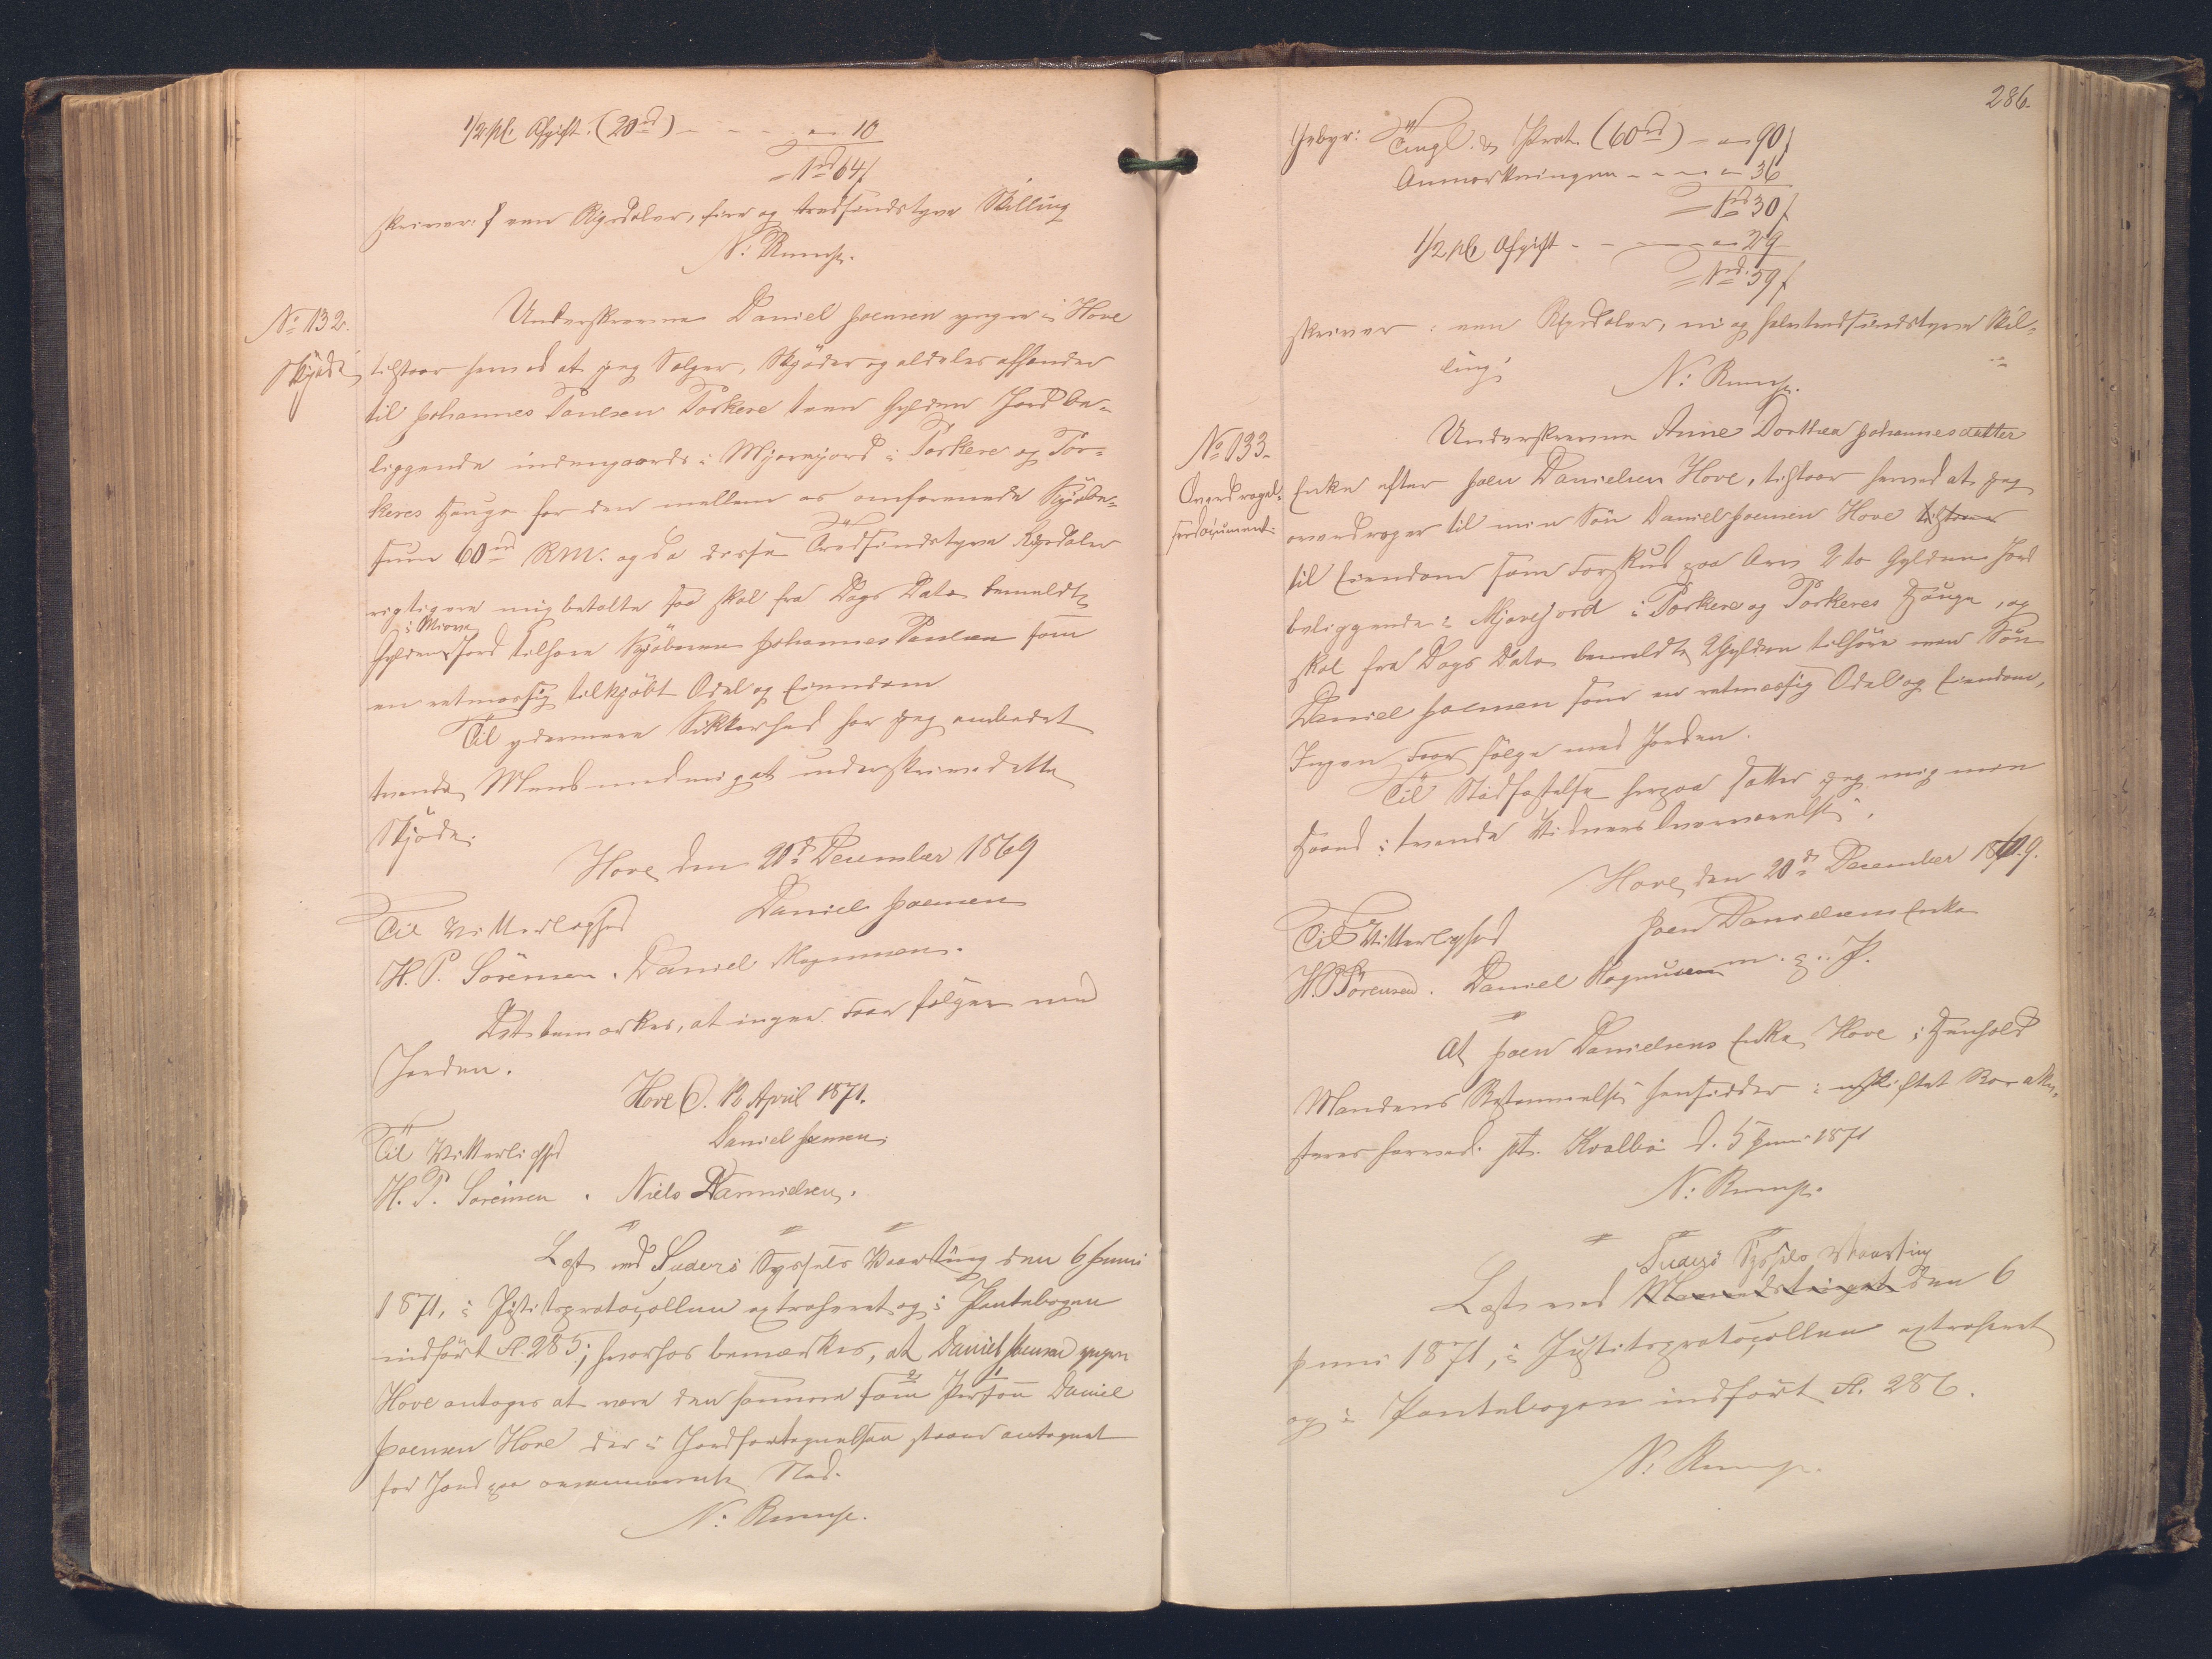 1/2 pC. Afgift. (20 rd) - - - - 10
= 1 rd 64 ſ
skriver: en Rigsdaler, fire og tredsindstyve Skilling
N: Rump.
No 132.
Skjøde
Underskrevne Daniel Joensen yngre i Hove
tilstaar herved at jeg Sælger, Skjøder og aldeles afhænder
til Johannes Poulsen Porkere tvende Gylden Jord be-
liggende indengaards i Mjovejord i Porkere og Por-
keres Hauge for den mellem os omforenede Kjøbe-
sum 60 rd RM. og da disse Tredsindstyve Rigsdaler
rigtigen mig betalte saa skal fra Dags Dato bemeldte
i Miove
Gylden Jord tilhøre Kjøberen Johannes Poulsen som
en retmæssig tilkjøbt Odel og Eiendom
Til ydermere Sikkerhed har jeg ombedet
tvende Mænd med mig at underskrive dette
Skjøde.
Hove den 20de December 1869
Til Vitterlighed
Daniel Joensen
H. P. Sörensen. Daniel Magnussen.
Det bemærkes, at ingen Faar følger med
Jorden.
Hove d. 12 April 1871.
Til Vitterlighed
Daniel Joensen
H. P. Sörensen. Niels Danielsen.
Læst ved Suderö Syssels Vaarting den 6 Juni
1871, i Justitsprotocollen extraheret og i Pantebogen
indført Fl. 285; hvorhos bemærkes, at Daniel Joensen yngre
Hove antages at være den samme som Person Daniel
Joensen Hove der i Jordfortegnelsen staar antegnet
for Jord paa ommeldte Sted.
N: Rump.
286.
Gebyr: Tingl. & Prot. (60 rd) - - 90 ſ
Anmærkningen - - - - 36
= 1 rd 30 ſ
1/2 pC. Afgift - - - 29
= 1 rd 59 ſ
skriver: een Rigsdaler, ni og halvtredsindstyve Skil-
ling.
N: Rump.
No 133.
Overdragel-
sesdocument.
Underskrevne Anne Dorthea Johannesdatter
Enke efter Joen Danielsen Hove, tilstaar herved at jeg
overdrager til min Søn Daniel Joensen Hove tilstaar
til Eiendom som Forskud paa Arv 2 to Gylden Jord
beliggende i Mjovejord i Porkere og Porkeres Hauge, og
skal fra Dags Dato bemeldte 2 Gylden tilhøre min Søn
Daniel Joensen som en retmæssig Odel og Eiendom,
Ingen Faar følge med Jorden.
Til Stadfæstelse herpaa sætter jeg mig min
Haand i tvende Vidners Overværelse.
Hove, den 20de December 1869.
Til Vitterlighed
Joen Danielsens Enke
H. P. Sörensen. Daniel Magnussen m. f. P.
At Joen Danielsens Enke Hove i Henhold
Mandens Bestemmelse hensidder i uskiftet Bo atte-
steres herved. pt. Kvalbö d. 5 Juni 1871
N: Rump.
Suderö Syssels Vaarting
Læst ved den 6
Juni 1871, i Justitsprotocollen extraheret
og i Pantebogen indført Fl. 286.
N: Rump.